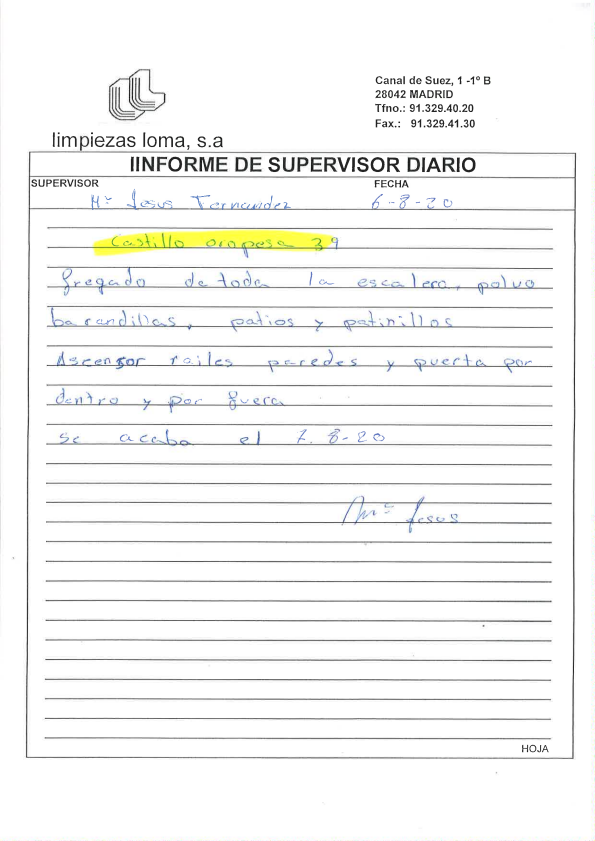 Canal de Suez, 1 -1º B
28042 MADRID
Tfno.: 91.329.40.20
Fax.: 91.329.41.30
limpiezas loma, s.a
IINFORME DE SUPERVISOR DIARIO
SUPERVISOR FECHA
Mª Jesus Fernandez 6-8-20
Castillo oropesa 39
fregado de toda la escalera, polvo
barandillas, patios y patinillos
Ascensor railes paredes y puerta por
dentro y por fuera
se acaba el 7.8-20
Mª Jesus
HOJA